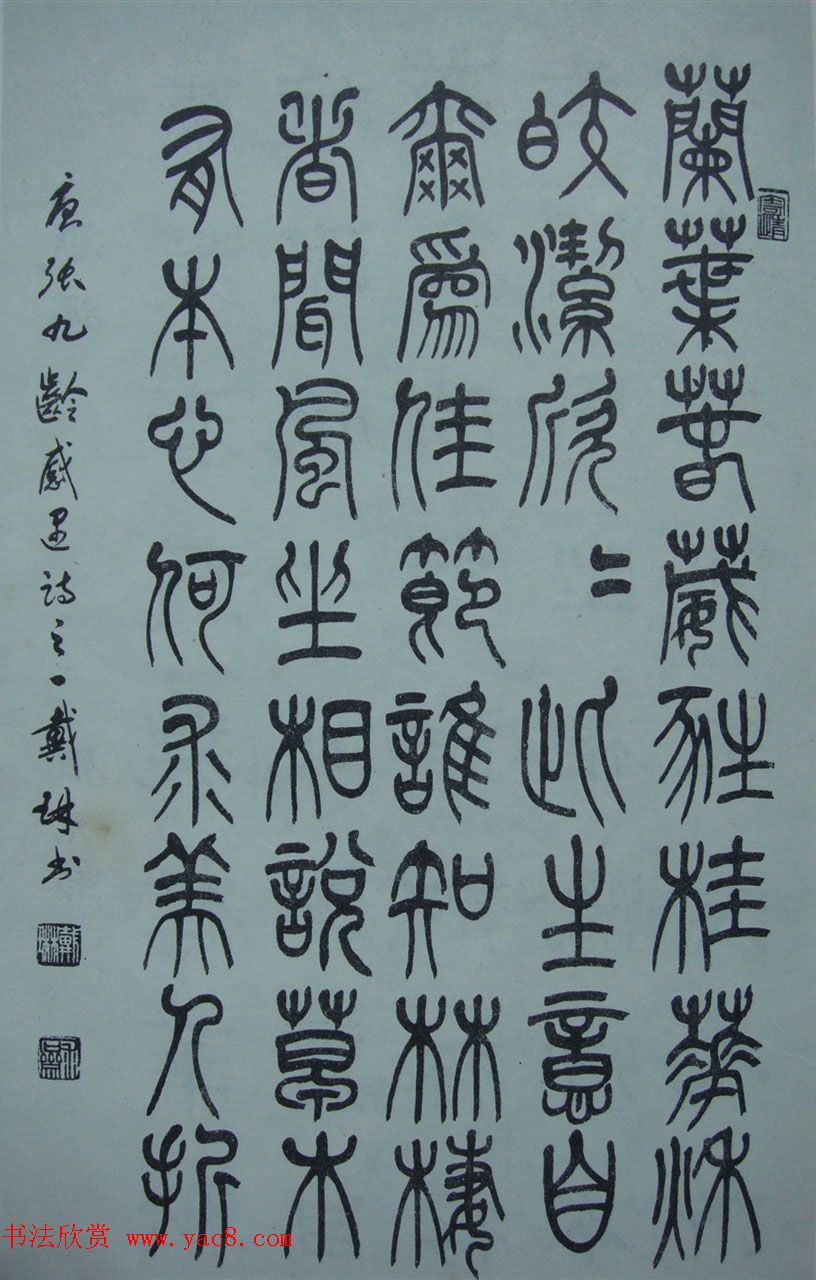 蘭葉春葳甤桂華秋
皎潔欣〻此生意自
爾爲佳節誰知林棲
者聞風坐相說草木
有本心何求美人折
唐張九齡感遇诗之一戴琳书
戴琳
书法欣赏 www.yac8.com